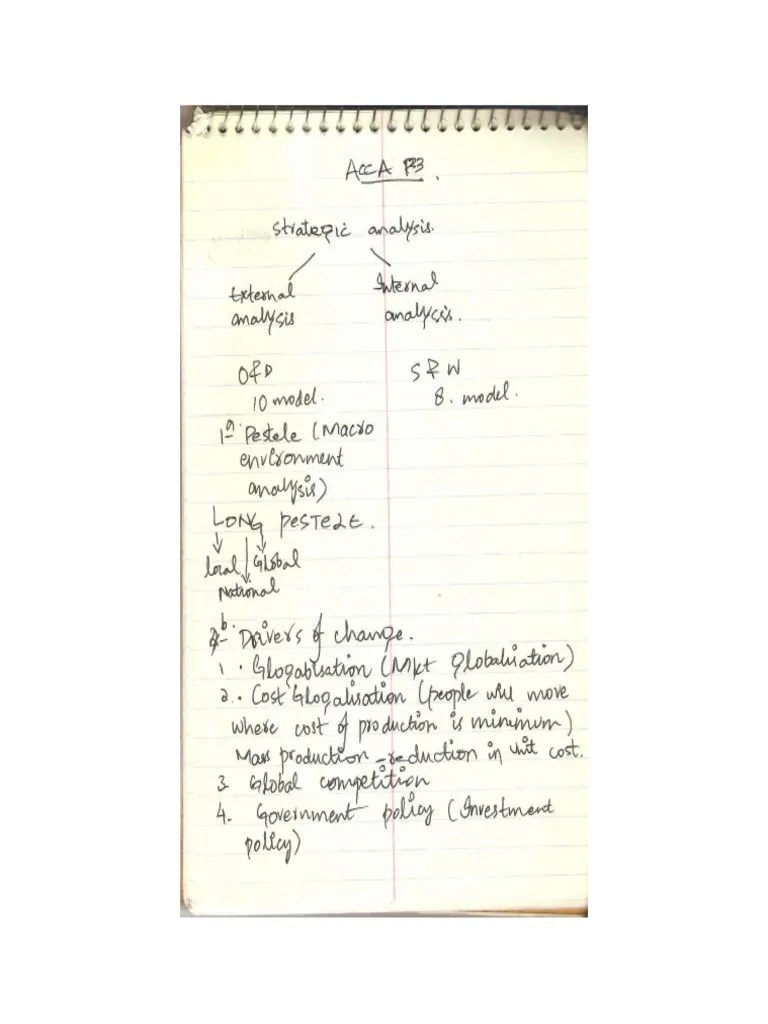 ACCA P3.
Strategic analysis.
External Internal
analysis analysis.
O & S & W
10 model. 8. model.
1- a. Pestele (Macro
environment
analysis)
LONG PESTELE.
Local Global
National
b. Drivers of change.
1. Glogabisation (Mkt Globalisation)
2. Cost Glogalisation (people will move
where cost of production is minimum)
Mass production - reduction in unit cost.
3 Global competition
4. Government policy (Investment
policy)